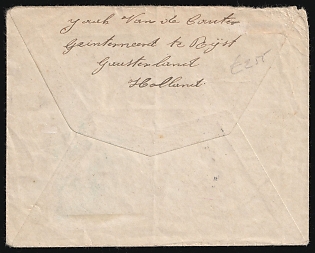 Jack Van de Couter
Geinterneerd te Rijst
Gaasterland
Holland
£25